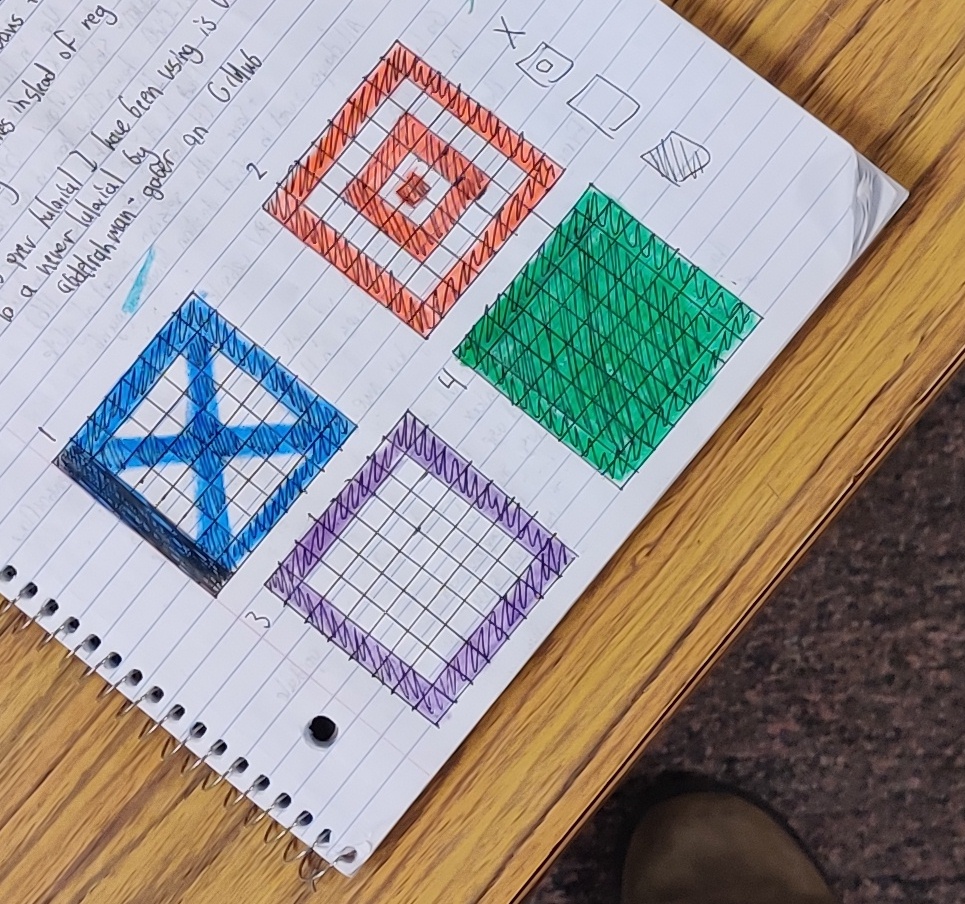 instead of reg
prev tutorial I have been using is
to a newer tutorial by
abdelrahman-gaber on GitHub
2
1
4
3